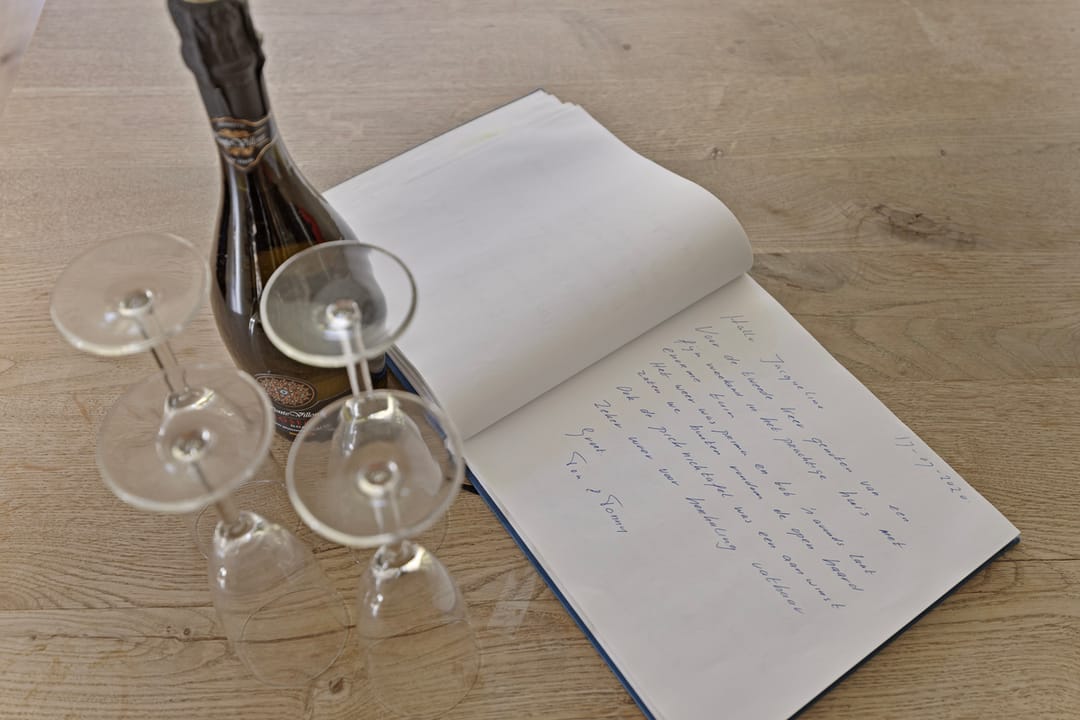 17-7-2020
Hallo Jacqueline
Voor de tweede keer genoten van een
fijn weekend in het prachtige huis met
enorme tuin.
Het weer was prima en tot 's avonds laat
zaten we buiten rondom de open haard
Ook de picknicktafel was een aanwinst
Zeker weer voor herhaling vatbaar
Groet
Ton & Tonny